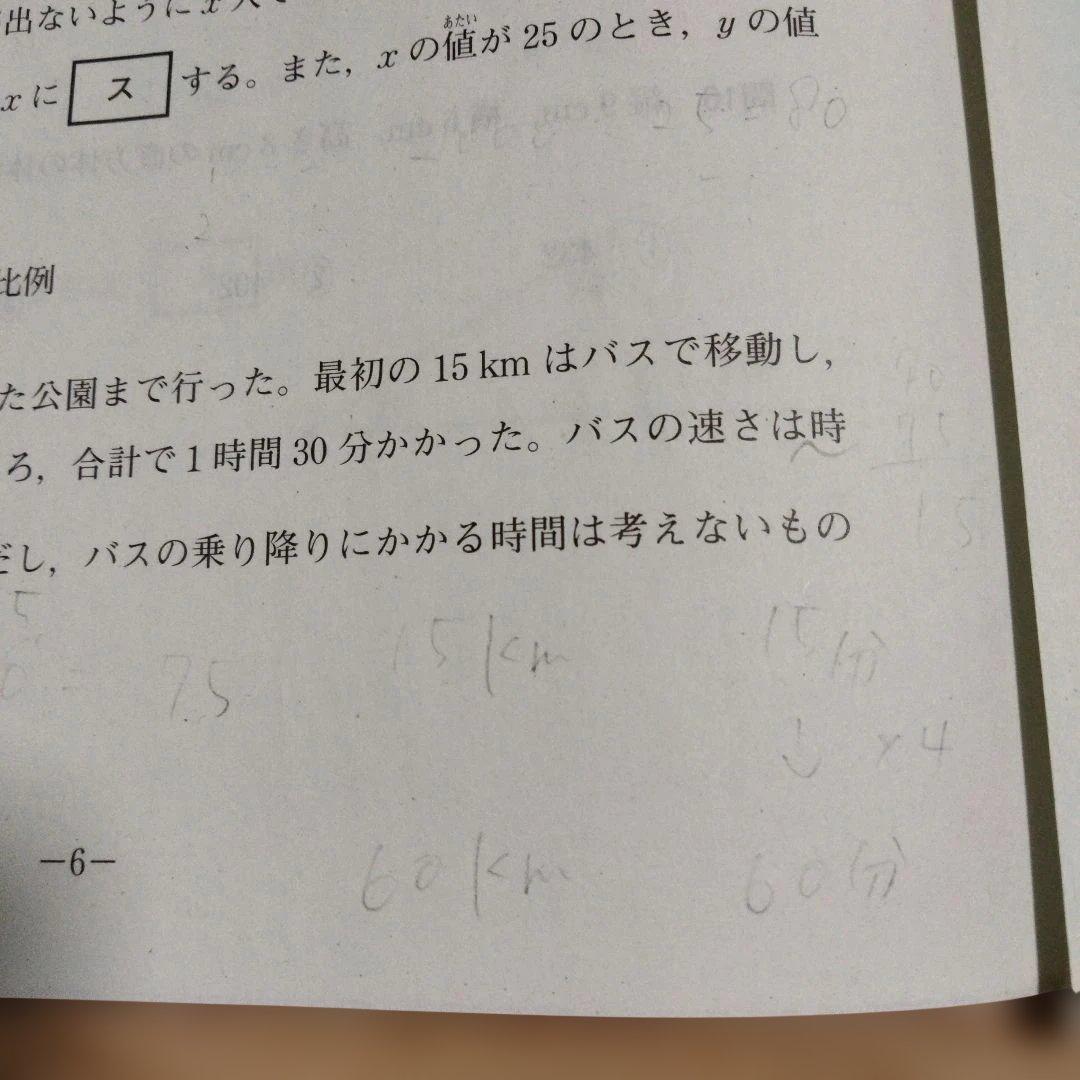 出ないように x 人で
x に ス する。また，x の値が 25 のとき，y の値
あたい
80
2
比例
た公園まで行った。最初の 15 km はバスで移動し，
ろ，合計で 1 時間 30 分かかった。バスの速さは時
だし，バスの乗り降りにかかる時間は考えないもの
5
0 = 75
15 km 15 分
↓ × 4
60 km 60 分
−6−